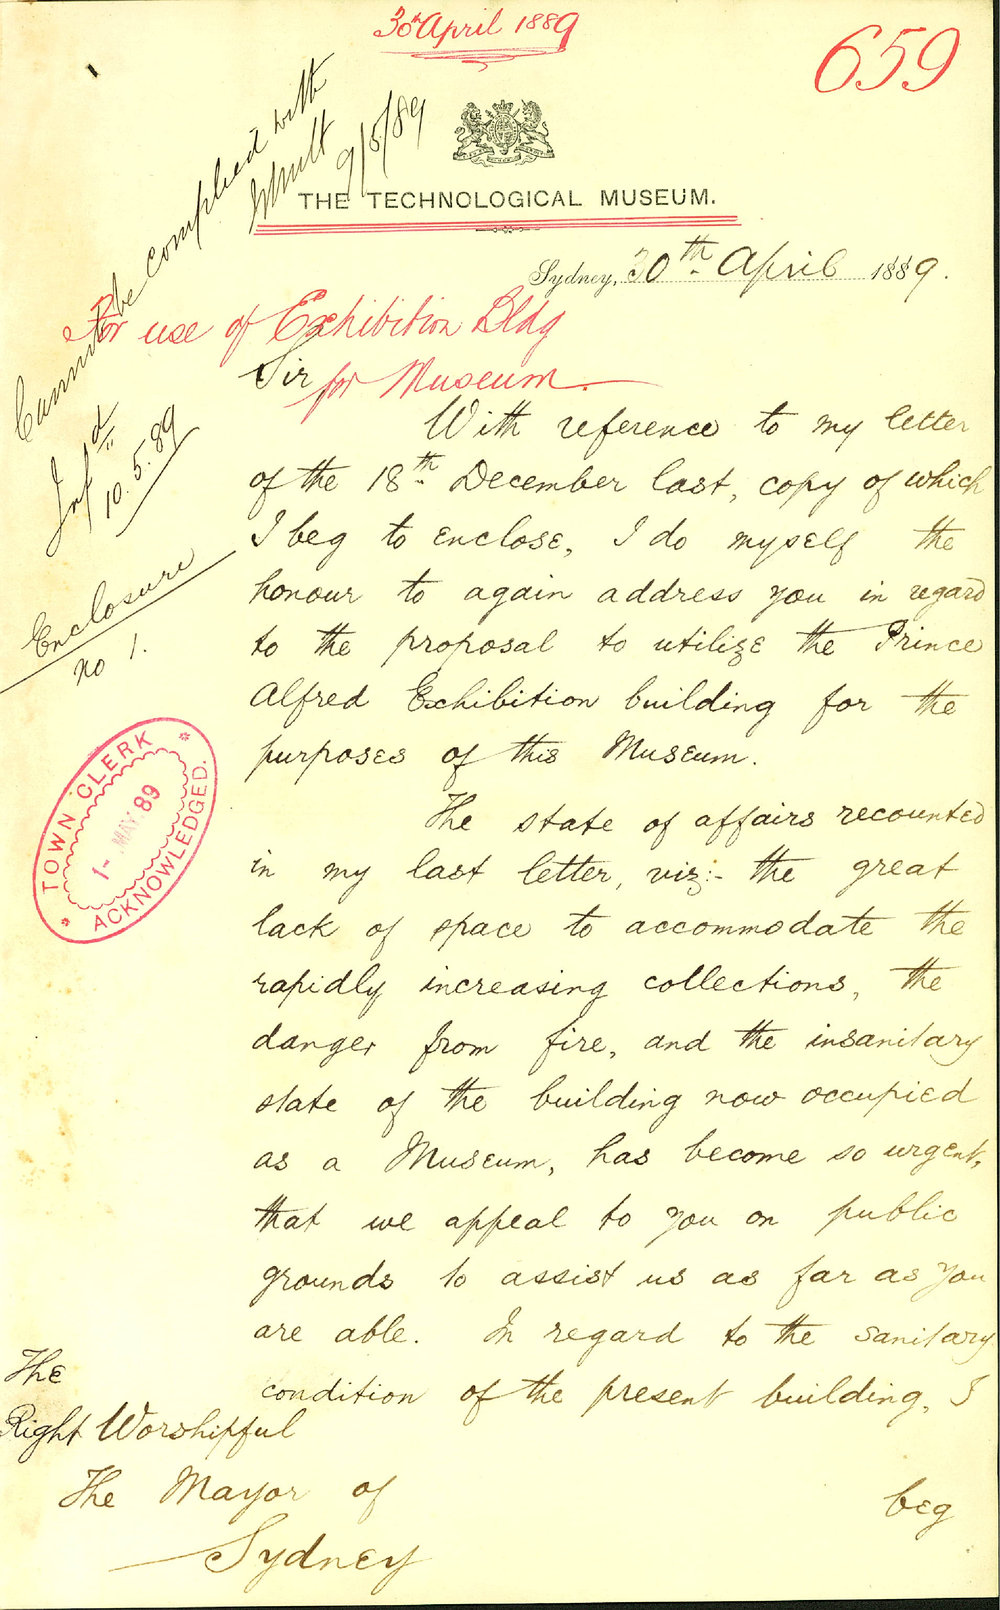 30th April 1889
659
Cannot be complied with
9/5/89
THE TECHNOLOGICAL MUSEUM.
Sydney, 30th April 1889.
For use of Exhibition Bldg
for Museum.
Sir
With reference to my letter
of the 18th December last, copy of which
I beg to enclose, I do myself the
honour to again address you in regard
to the proposal to utilize the Prince
Alfred Exhibition building for the
purposes of this Museum.
The state of affairs recounted
in my last letter, viz:- the great
lack of space to accommodate the
rapidly increasing collections, the
danger from fire, and the insanitary
state of the building now occupied
as a Museum, has become so urgent,
that we appeal to you on public
grounds to assist us as far as you
are able. In regard to the sanitary
condition of the present building, I
beg
Infd
10.5.89
Enclosure
no 1.
TOWN CLERK
1- MAY 89
ACKNOWLEDGED.
The
Right Worshipful
The Mayor of
Sydney